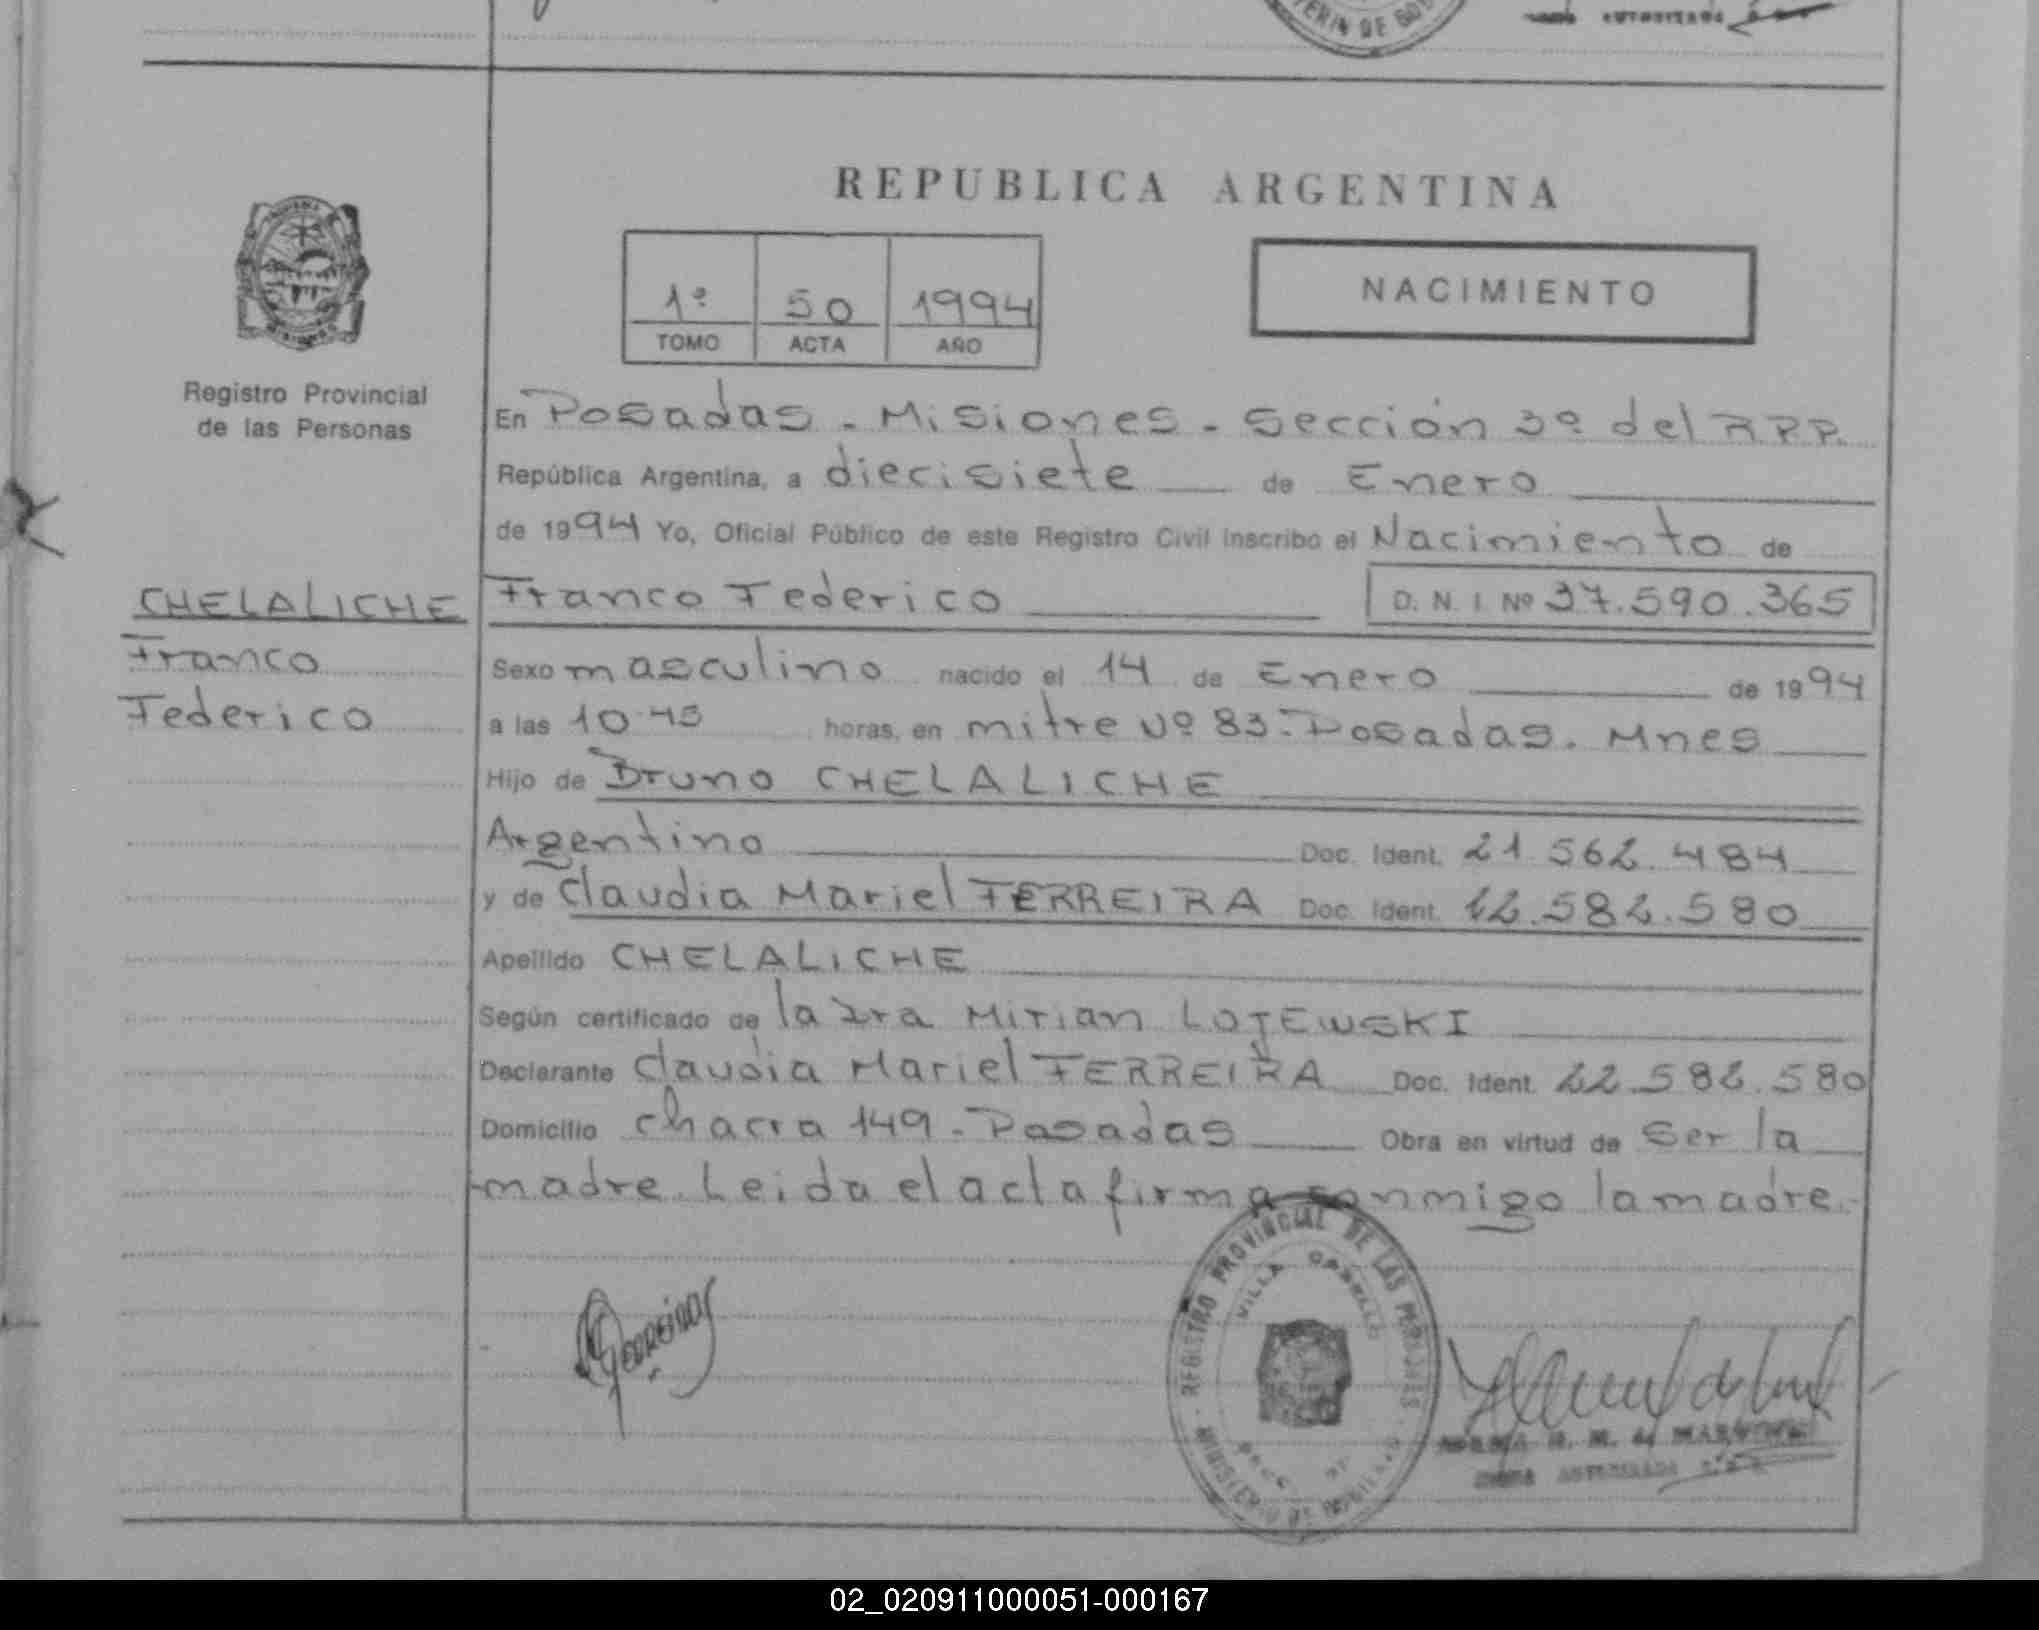 REPUBLICA ARGENTINA
1º 50 1994
TOMO ACTA AÑO
NACIMIENTO
Registro Provincial
de las Personas
En Posadas - Misiones - Sección 3º del RPP.
República Argentina, a diecisiete de Enero
de 1994 Yo, Oficial Público de este Registro Civil inscribo el Nacimiento de
CHELALICHE
Franco
Federico
Franco Federico D. N. I. Nº 37.590.365
Sexo masculino nacido el 14 de Enero de 1994
a las 10.45 horas, en mitre Nº 83 - Posadas. Mnes
Hijo de Bruno CHELALICHE
Argentino Doc. Ident. 21.562.484
y de Claudia Mariel FERREIRA Doc. Ident. 22.582.580
Apellido CHELALICHE
Según certificado de la Dra Mirian LOJEWSKI
Declarante Claudia Mariel FERREIRA Doc. Ident. 22.582.580
Domicilio chacra 149 - Posadas Obra en virtud de Ser la
madre. Leida el acta firma conmigo la madre.-
REGISTRO PROVINCIAL DE LAS PERSONAS
VILLA
MINISTERIO DE GOBIERNO
02_020911000051-000167